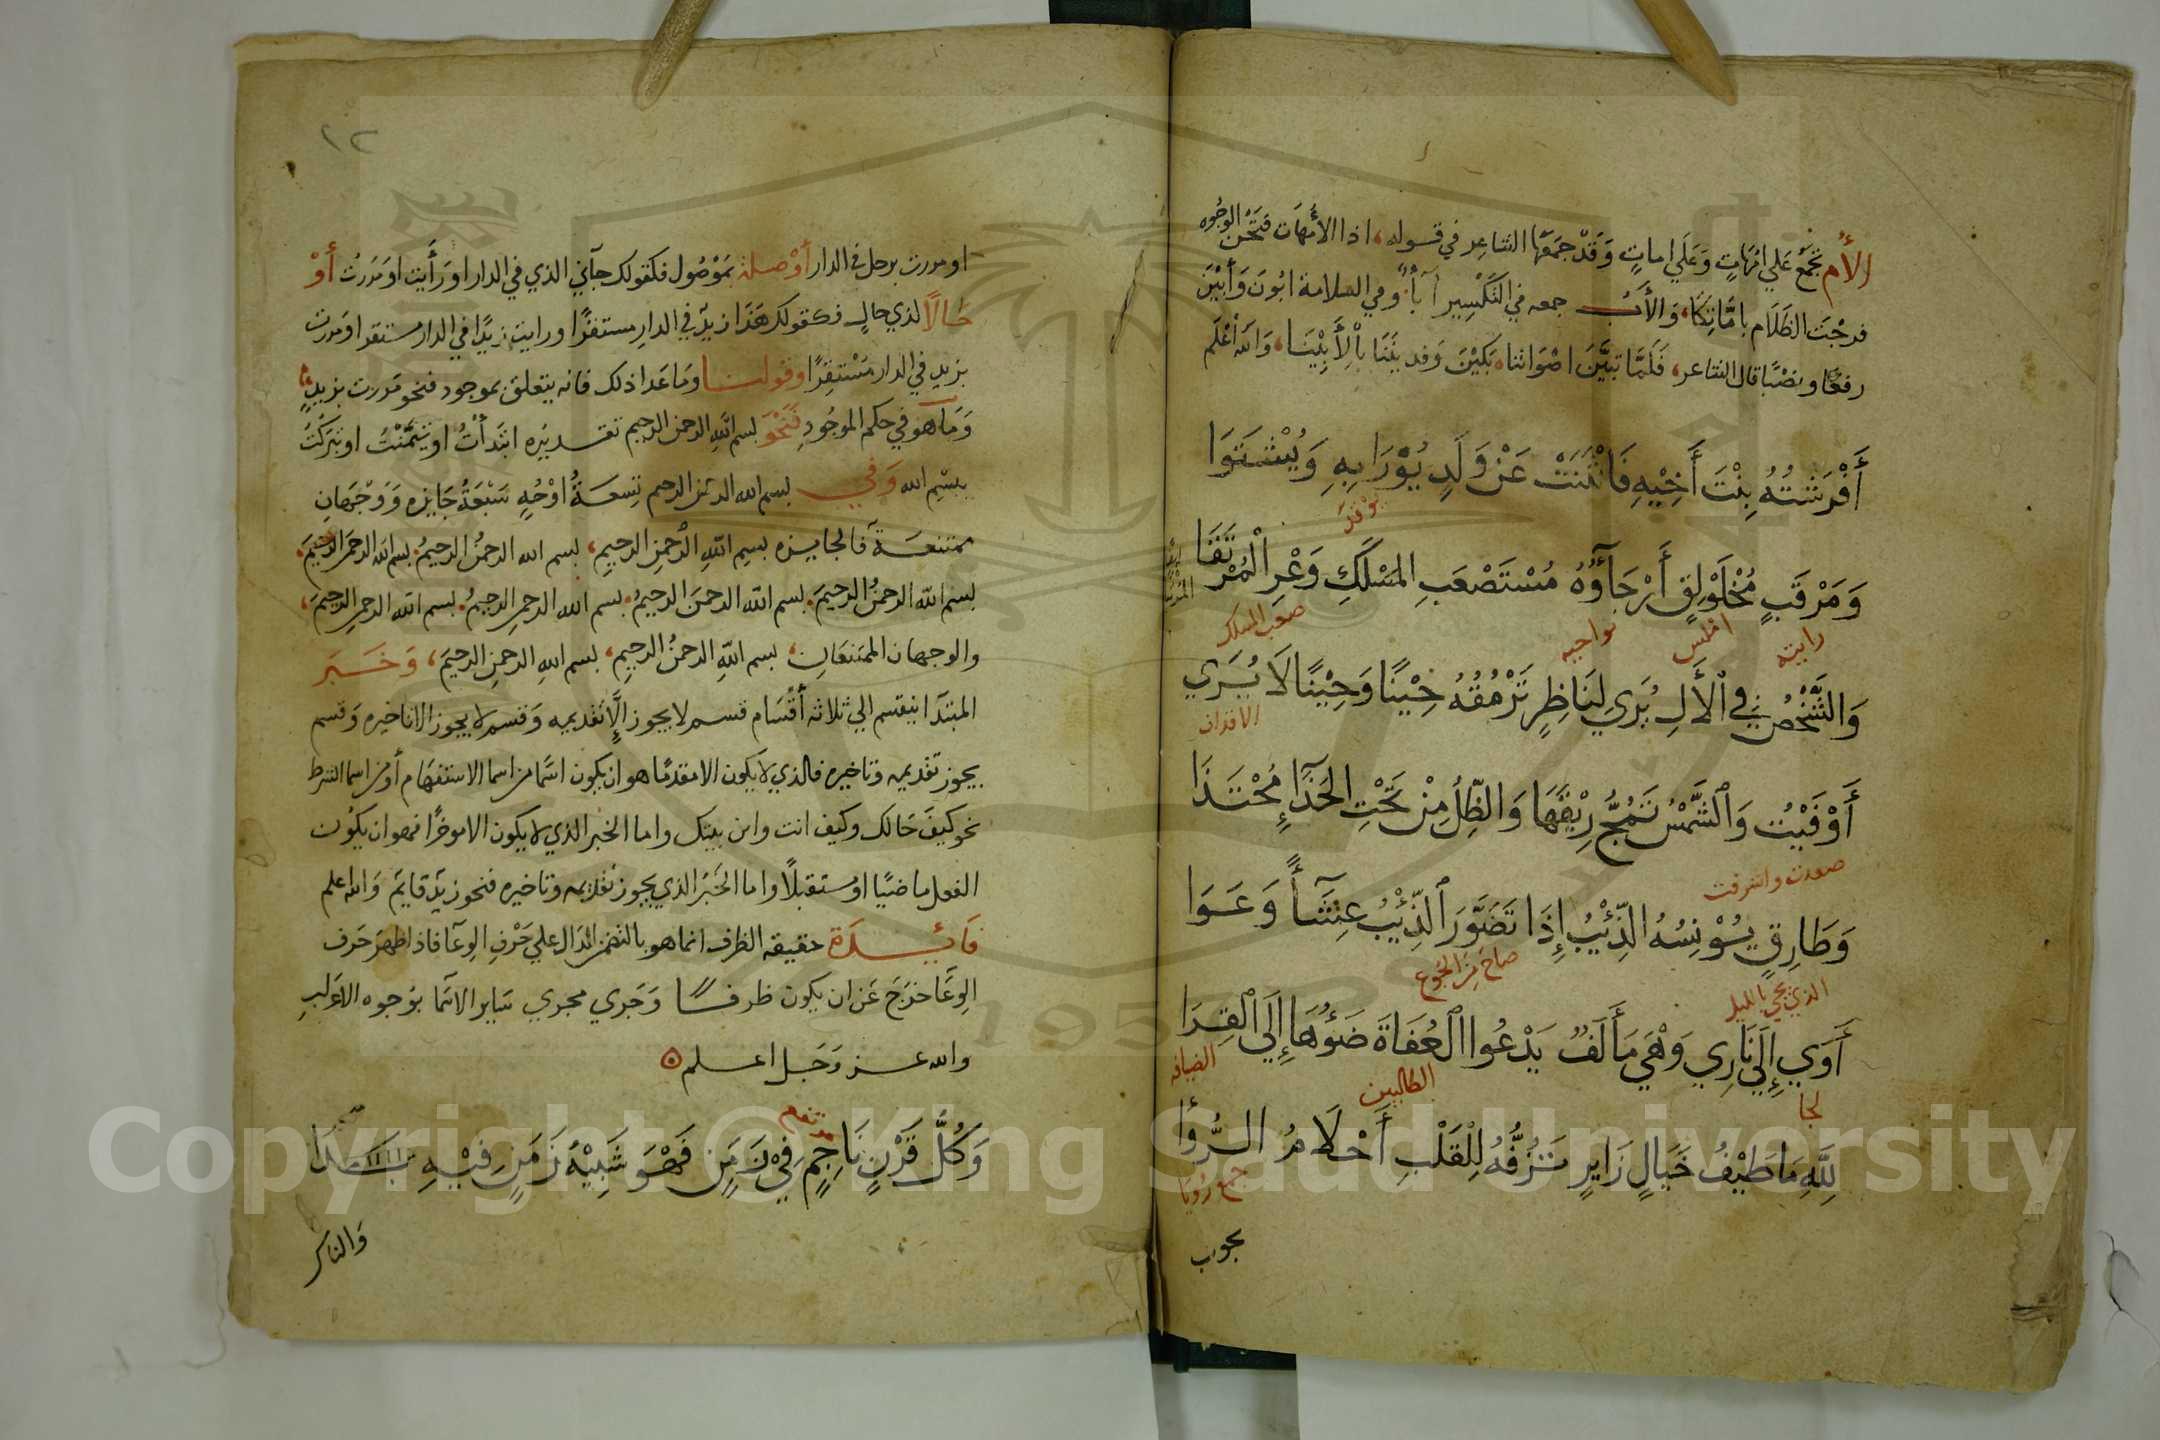 الأم تجمع علي امهاتٍ وَعَلَي اماتٍ وَقَدْ جمَعَها الشاعِر في قوله، اذا الأمهَات قبَحْن الوجُوه
فرجْتَ الظلَام بامَّاتِكَا، وَالأَب جمعه في التَكسِير آبآءً وفي السلامة ابُونَ وَأَبْيَنَ
رفعًا ونصْبًا قال الشاعر، فَلَمَّا تبَيَّنَ اصْوَاتنا، بَكيْنَ وَفديننَا بالأَبيْنَا، وَالله أعْلَم
أَفْرَشْتُهُ بِنْتَ أَخِيْهِ فَانْثَنَتْ عَنْ وَلَدٍ يُوْرَا بِهِ وَيُشْتَوَا
يوقد
وَمَرْقَبٍ مُخْلَوْلِقٍ أَرْجَآؤُهُ مُسْتَصْعَبِ المَسْلَكِ وَعْرِ الْمُرْتَقَا
رابية
املس
نواحيه
صعب المسلك
وَالشَّخْصُ فِي الْأَلِ يُرَي لِنَاظِرٍ تَرْمُقُهُ حِيْنًا وَحِيْنًا لَا يُرَي
أَوْفَيْتُ وَالشَّمْسُ تَمُجُّ رِيْقَهَا وَالظِّلُ مِنْ تَحْتِ الحَذَآءِ مُحْتَذَا
صعدت واشرفت
وَطَارِقٍ يُؤْنِسُهُ الذِّئْبُ إِذَا تَضَوَّرَ الذِّئْبُ عِشَآءً وَعَوَا
الذي يجي بالليل
صاح من الجوع
أَوَي إِلَي نَارِي وَهْيَ مَأْلَفٌ يَدْعُوا الْعُفَاةَ ضَوْءُهَا إِلَي الْقِرَا
لجا
الطالبين
الضيافه
لِلَّهِ مَا طَيْفُ خَيَالٍ زَايرٍ تَزُفُّهُ لِلْقَلْبِ أَحْلَامُ الرُّؤَا
جمع رويا
يجوب
١٢
او مررت برجل في الدار أوْ صلة بمَوْصُول فكقولك جآني الذي في الدار او رَأَيت او مَرَرتُ أوْ
حَالًا لذي حالٍ فكقولك هَذا زيدٌ في الدارِ مستقرًا ورايت زيدًا في الدار مستقرا ومررت
بزيدٍ في الدار مَسْتقِرًا وقولنا ومَا عَدا ذلك فانه يتعلق بموجود فنحو مَررت بزيدٍ
وَمَا هو في حكم الموجُودِ فَنَحْوَ بسم اللهِ الرحمن الرحيم تقديره ابتدأتُ او تيَمَّنْتُ او تبَركْتُ
ببِسْمِ الله وَفِي بسم الله الرحمن الرحيم تِسعَةُ اوْجُهٍ سَبْعَةٌ جَايزه وَوَجْهَانِ
ممتنعة فالجايزه بسمِ اللهِ الرَّحْمنِ الرحيمِ، بسم الله الرحمنُ الرحيمُ. بسم الله الرحمَن الرحيمَ.
بسم الله الرحمنُ الرحيمَ. بسم الله الرحمنَ الرحيمُ. بسم الله الرحمنِ الرحيمُ. بسم الله الرحمنِ الرحيمَ،
والوجهان الممتنعَانِ، بسم اللهِ الرحمنُ الرحيمِ، بسم اللهِ الرحمنَ الرحيمِ، وَخَبَر
المبتدَا ينقسم الي ثلاثه أقْسَام قسم لا يجوز إلَّا تقديمه وَقسم لا يجوز الا تاخيره وَقسم
يجوز تقديمه وتاخيره فالذي لا يكون الا مقدمًا هو ان يكون اسمًا من اسما الاستفهَام أو من اسما الشرط
نحو كيفَ حَالك وكيف انت واين بيتك واما الخبر الذي لا يكون الا موخرًا فهو ان يكوُن
الفعل ماضيًا او مستقبلًا واما الخَبَرُ الذي يجوز تقديمه وتاخيره فنحو زيدٌ قايم وَالله اعلم
فَائِدَة حقيقه الظرف انما هو بالتضمن الدَال علي حَرْفِ الوِعَآ فاذا ظهرَ حَرف
الوِعَآ خرَجَ عَن ان يكون ظرفًا وَجَري مجري سَاير الاسمَا بوُجوه الاعرَابِ
والله عز وَجَل اعلم
وَكُلُّ قَرْنٍ نَاجِمٍ فِيْ زَمَنٍ فَهْوَ شَبِيْهُ زَمَنٍ فِيْهِ بَدَا
وَالناس
Copyright © King Saud University